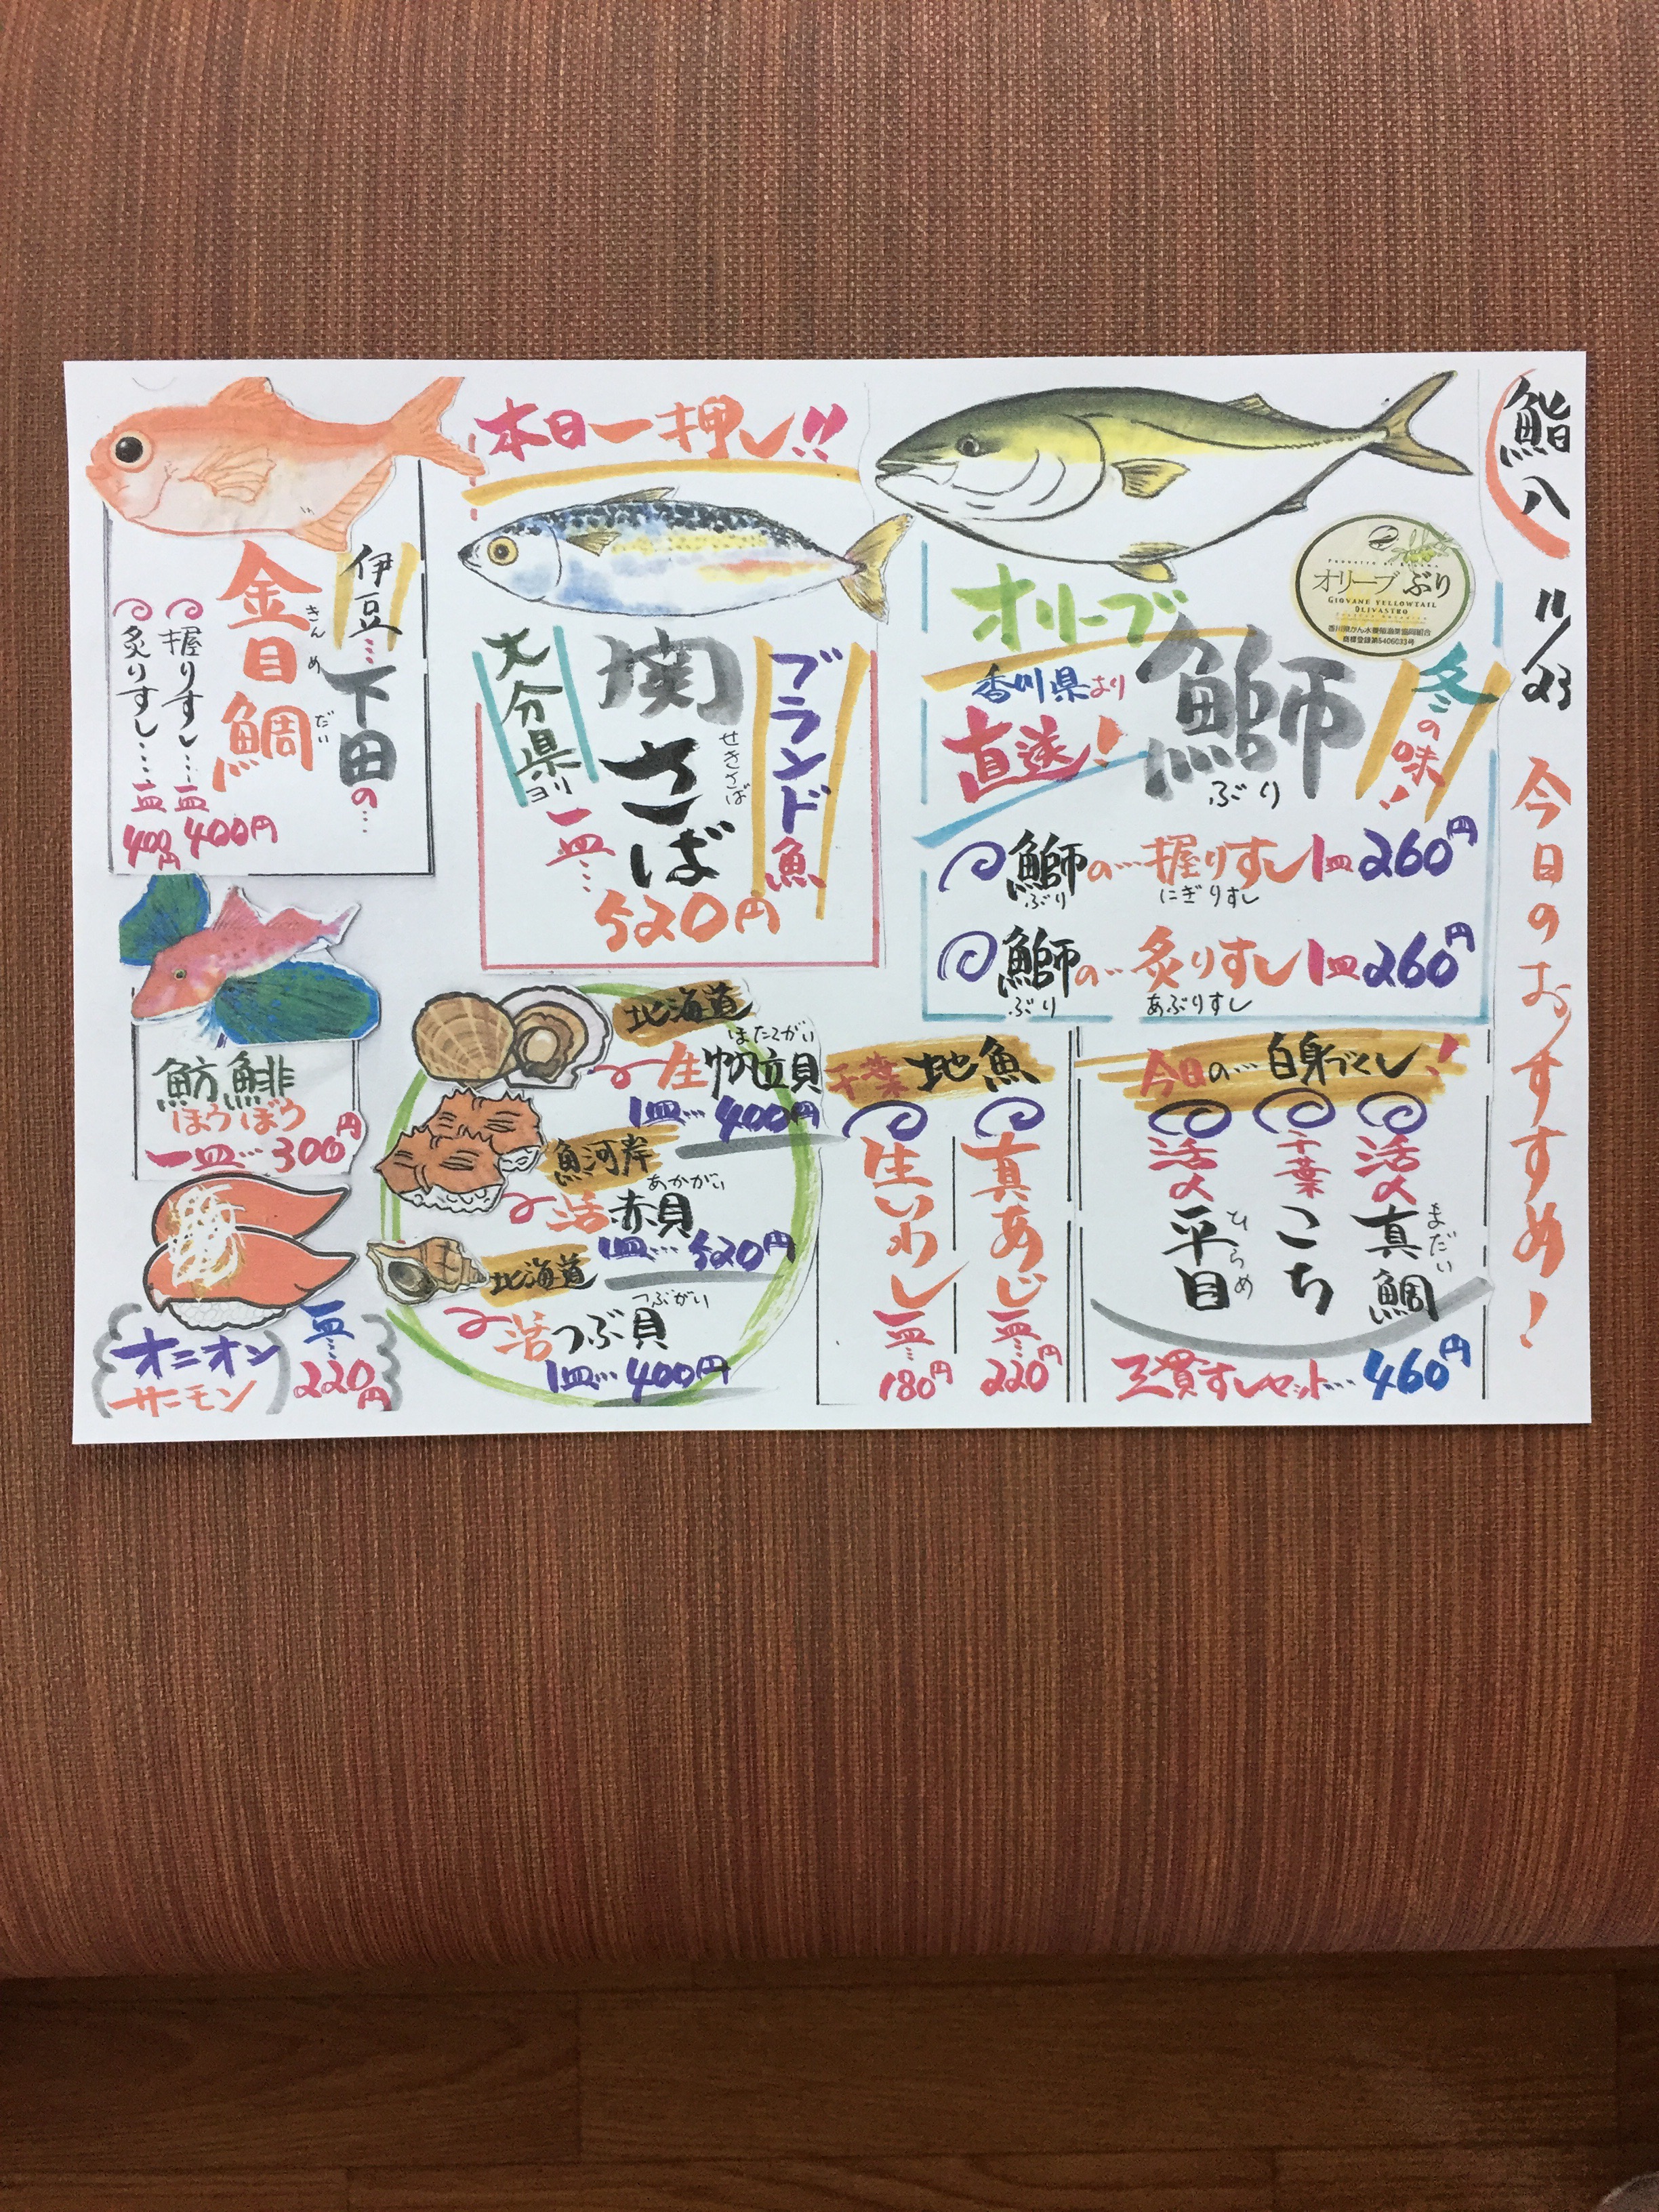 鮨八
11/23
今日のおすすめ!
オリーブぶり
GIOVANE YELLOWTAIL
OLIVASTRO
香川県かん水養殖漁業協同組合
商標登録第5406033号
冬の味!
オリーブ
鰤
ぶり
香川県より
直送!
鰤の…握りすし1皿260円
ぶり にぎりすし
鰤の…炙りすし1皿260円
ぶり あぶりすし
本日一押し!!
ブランド魚
関さば
せきさば
大分県ヨリ
一皿…
520円
伊豆…下田の…
金目鯛
きんめだい
握りすし…一皿400円
炙りすし…一皿400円
今日の…白身づくし!
活〆真鯛
まだい
千葉こち
活〆平目
ひらめ
三貫すしセット…460円
千葉地魚
真あじ一皿…220円
生いわし一皿…180円
北海道
ほたてがい
生帆立貝
1皿…400円
魚河岸
あかがい
活赤貝
1皿…520円
北海道
つぶがい
活つぶ貝
1皿…400円
魴鯡
ほうぼう
一皿…300円
オニオン
サーモン
一皿…
220円